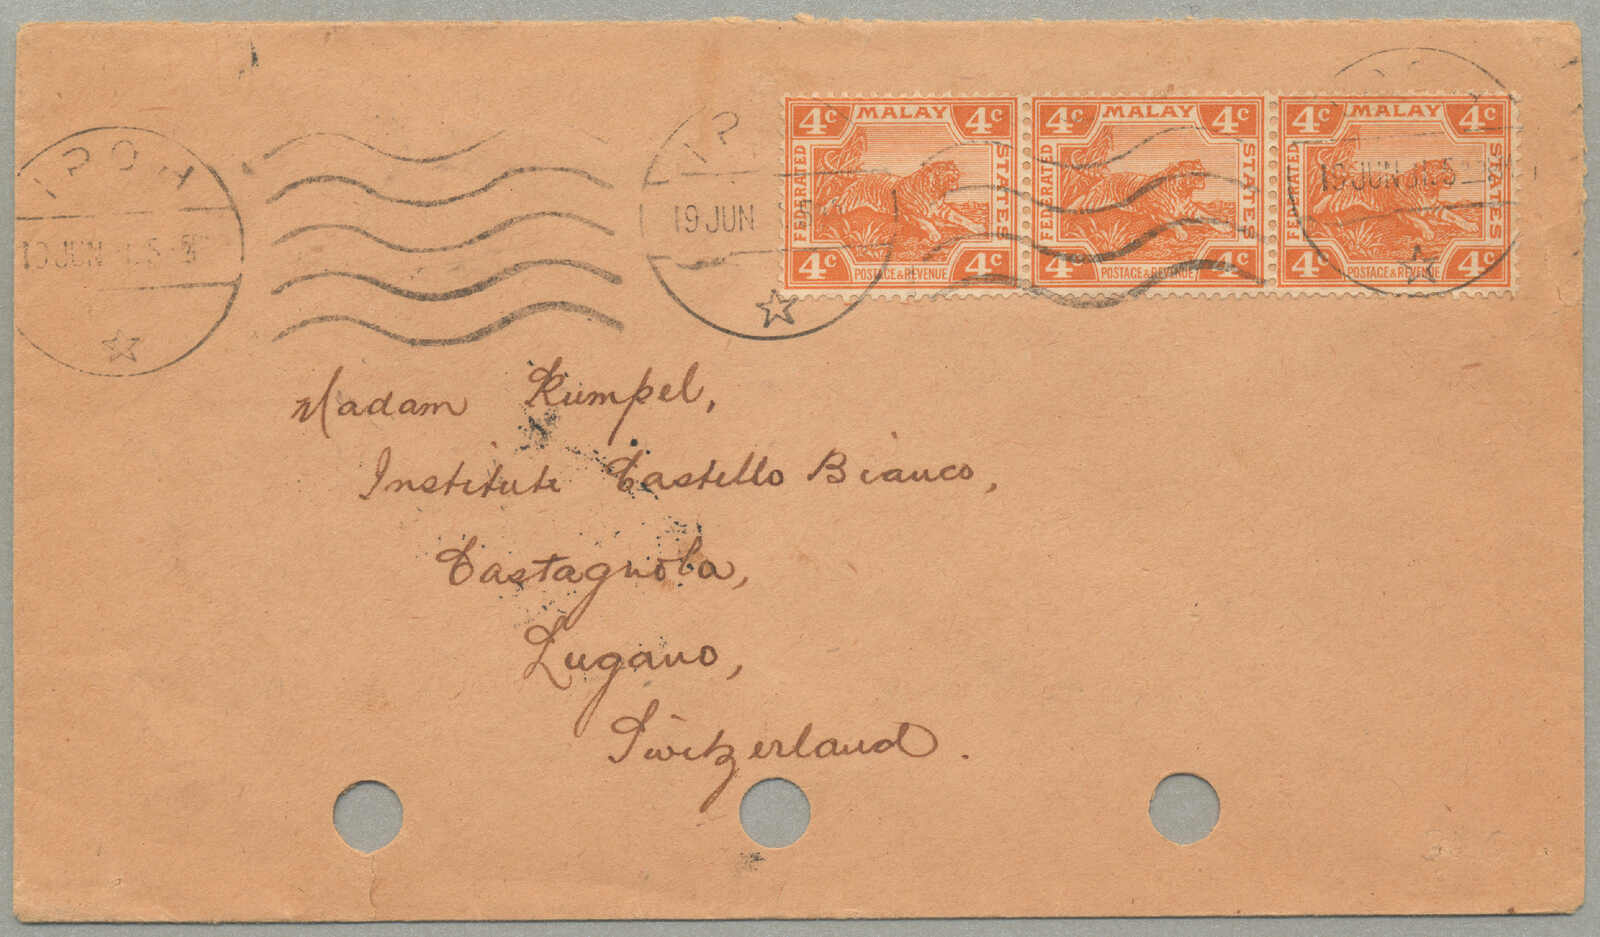 IPOH
19 JUN
IP
19 JUN
19 JUN 31. 5
4c MALAY 4c
FEDERATED STATES
4c POSTAGE & REVENUE 4c
4c MALAY 4c
FEDERATED STATES
4c POSTAGE & REVENUE 4c
4c MALAY 4c
FEDERATED STATES
4c POSTAGE & REVENUE 4c
Madam Rumpel,
Institute Castello Bianco,
Castagnola,
Lugano,
Switzerland.